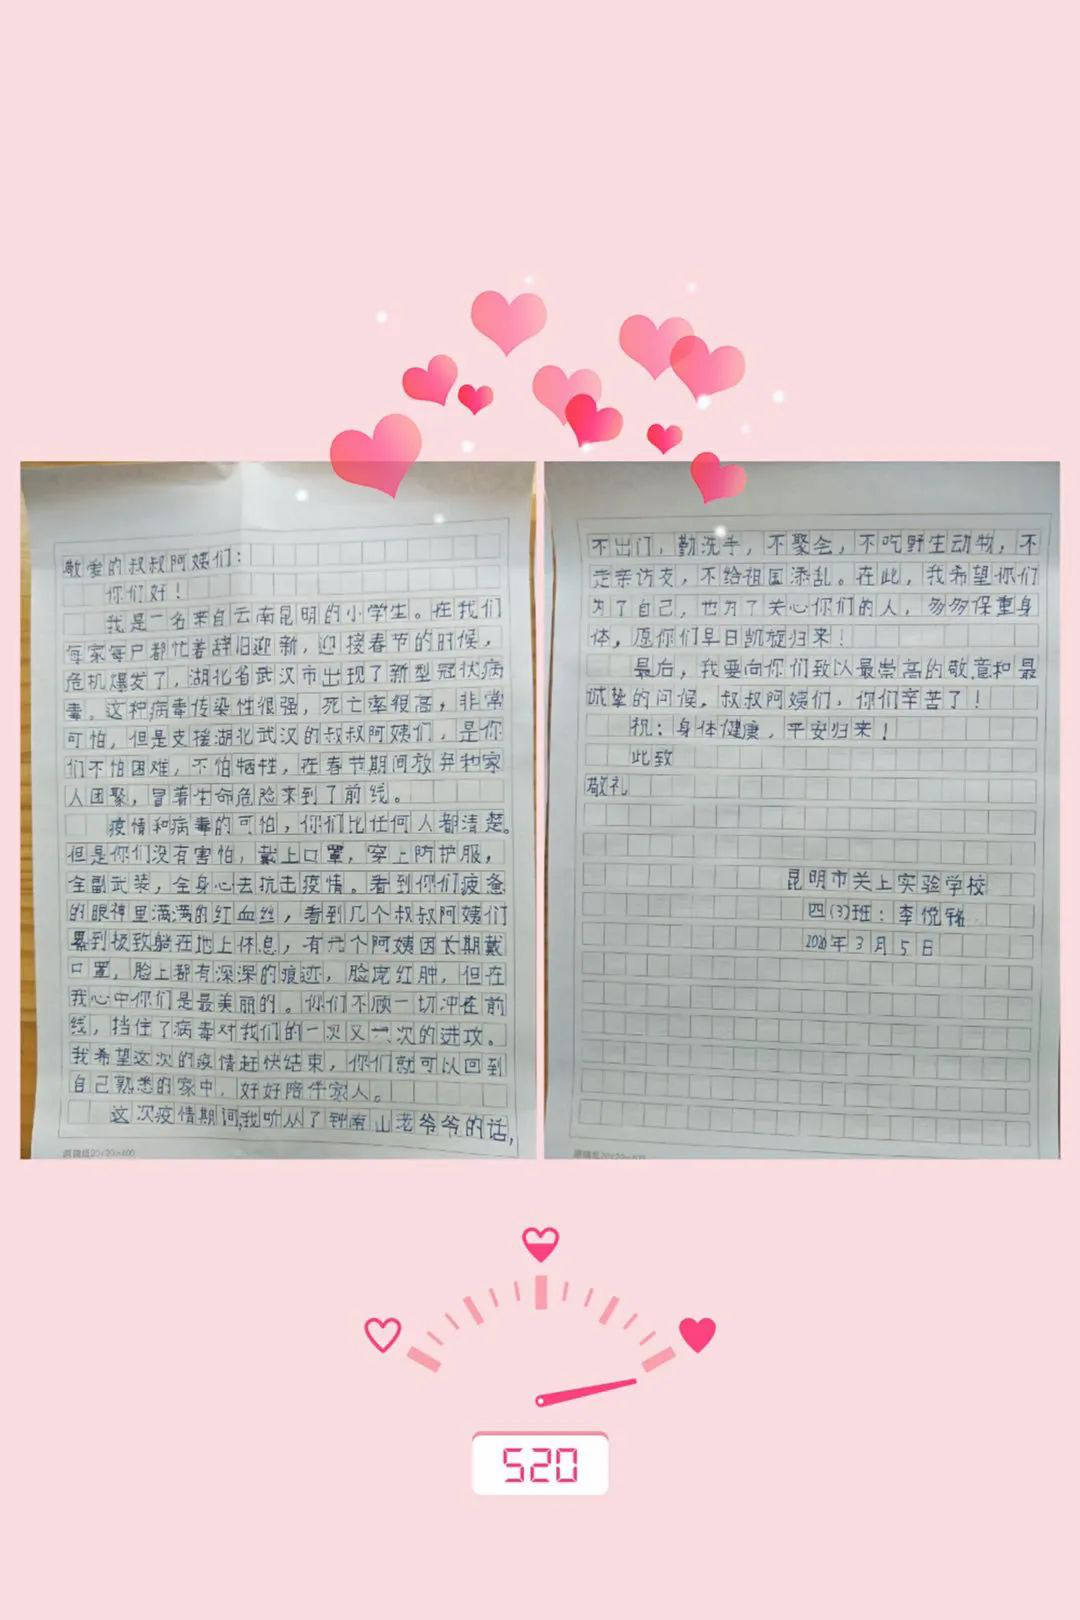 敬爱的叔叔阿姨们：
你们好！
我是一名来自云南昆明的小学生。在我们
每家每户都忙着辞旧迎新，迎接春节的时候，
危机爆发了，湖北省武汉市出现了新型冠状病
毒。这种病毒传染性很强，死亡率很高，非常
可怕，但是支援湖北武汉的叔叔阿姨们，是你
们不怕困难，不怕牺牲，在春节期间放弃和家
人团聚，冒着生命危险来到了前线。
疫情和病毒的可怕，你们比任何人都清楚。
但是你们没有害怕，戴上口罩，穿上防护服，
全副武装，全身心去抗击疫情。看到你们疲惫
的眼神里满满的红血丝，看到几个叔叔阿姨们
累到极致躺在地上休息，有几个阿姨因长期戴
口罩，脸上都有深深的痕迹，脸庞红肿，但在
我心中你们是最美丽的。你们不顾一切冲在前
线，挡住了病毒对我们的一次又一次的进攻。
我希望这次的疫情赶快结束，你们就可以回到
自己熟悉的家中，好好陪伴家人。
这次疫情期间，我听从了钟南山老爷爷的话，
不出门，勤洗手，不聚会，不吃野生动物，不
走亲访友，不给祖国添乱。在此，我希望你们
为了自己，也为了关心你们的人，多多保重身
体，愿你们早日凯旋归来！
最后，我要向你们致以最崇高的敬意和最
诚挚的问候，叔叔阿姨们，你们辛苦了！
祝：身体健康，平安归来！
此致
敬礼
昆明市关上实验学校
四(3)班：李悦铭
2020年3月5日
520